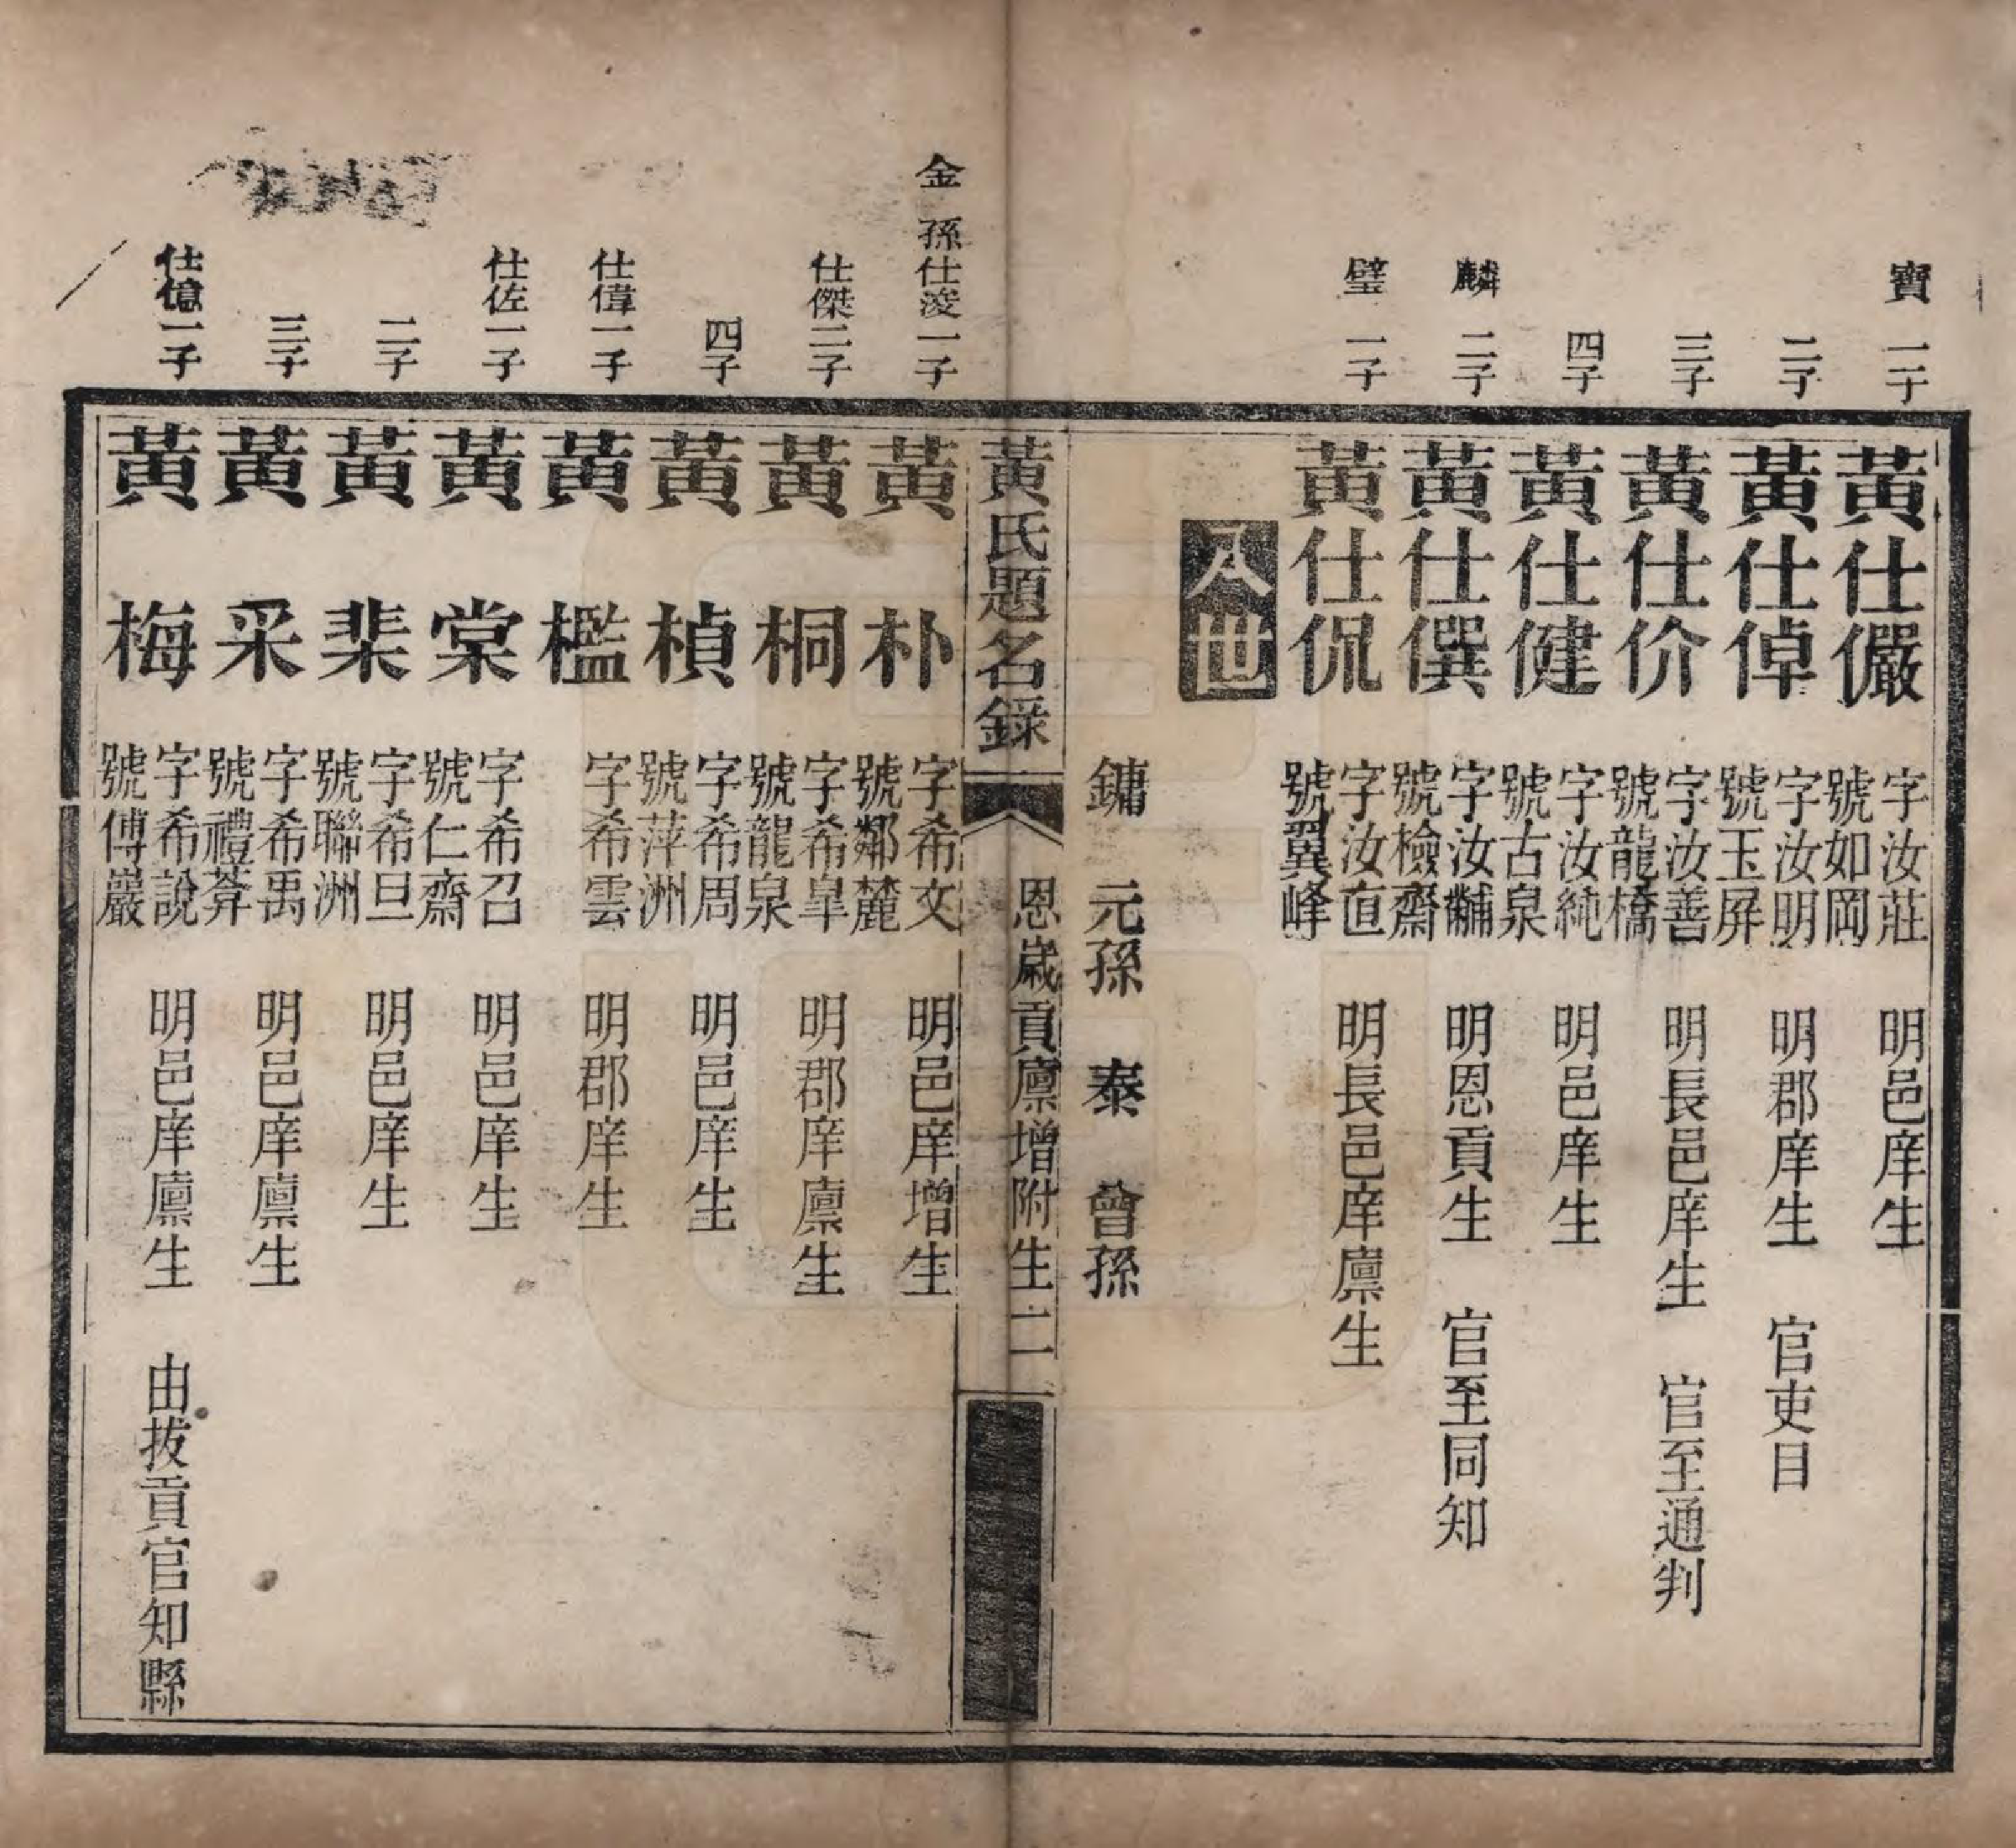 寶 一子 黃仕儼 字汝莊 號如岡 明邑庠生
二子 黃仕倬 字汝明 號玉屏 明郡庠生 官吏目
三子 黃仕价 字汝善 號龍橋 明長邑庠生 官至通判
四子 黃仕健 字汝純 號古泉 明邑庠生
麟 二子 黃仕僎 字汝黼 號檢齋 明恩貢生 官至同知
璧 一子 黃仕侃 字汝直 號翼峰 明長邑庠廩生
八世
鏞 元孫 泰 曾孫
黃氏題名錄 恩歲貢廩增附生 二
金 孫仕浚一子 黃朴 字希文 號鄰麓 明邑庠增生
仕傑二子 黃桐 字希皐 號龍泉 明郡庠廩生
四子 黃楨 字希周 號萍洲 明邑庠生
仕偉一子 黃檻 字希雲 明郡庠生
仕佐一子 黃棠 字希召 號仁齋 明邑庠生
二子 黃棐 字希旦 號聯洲 明邑庠生
三子 黃采 字希禹 號禮莽 明邑庠廩生
仕億一子 黃梅 字希說 號傅巖 明邑庠廩生 由拔貢官知縣